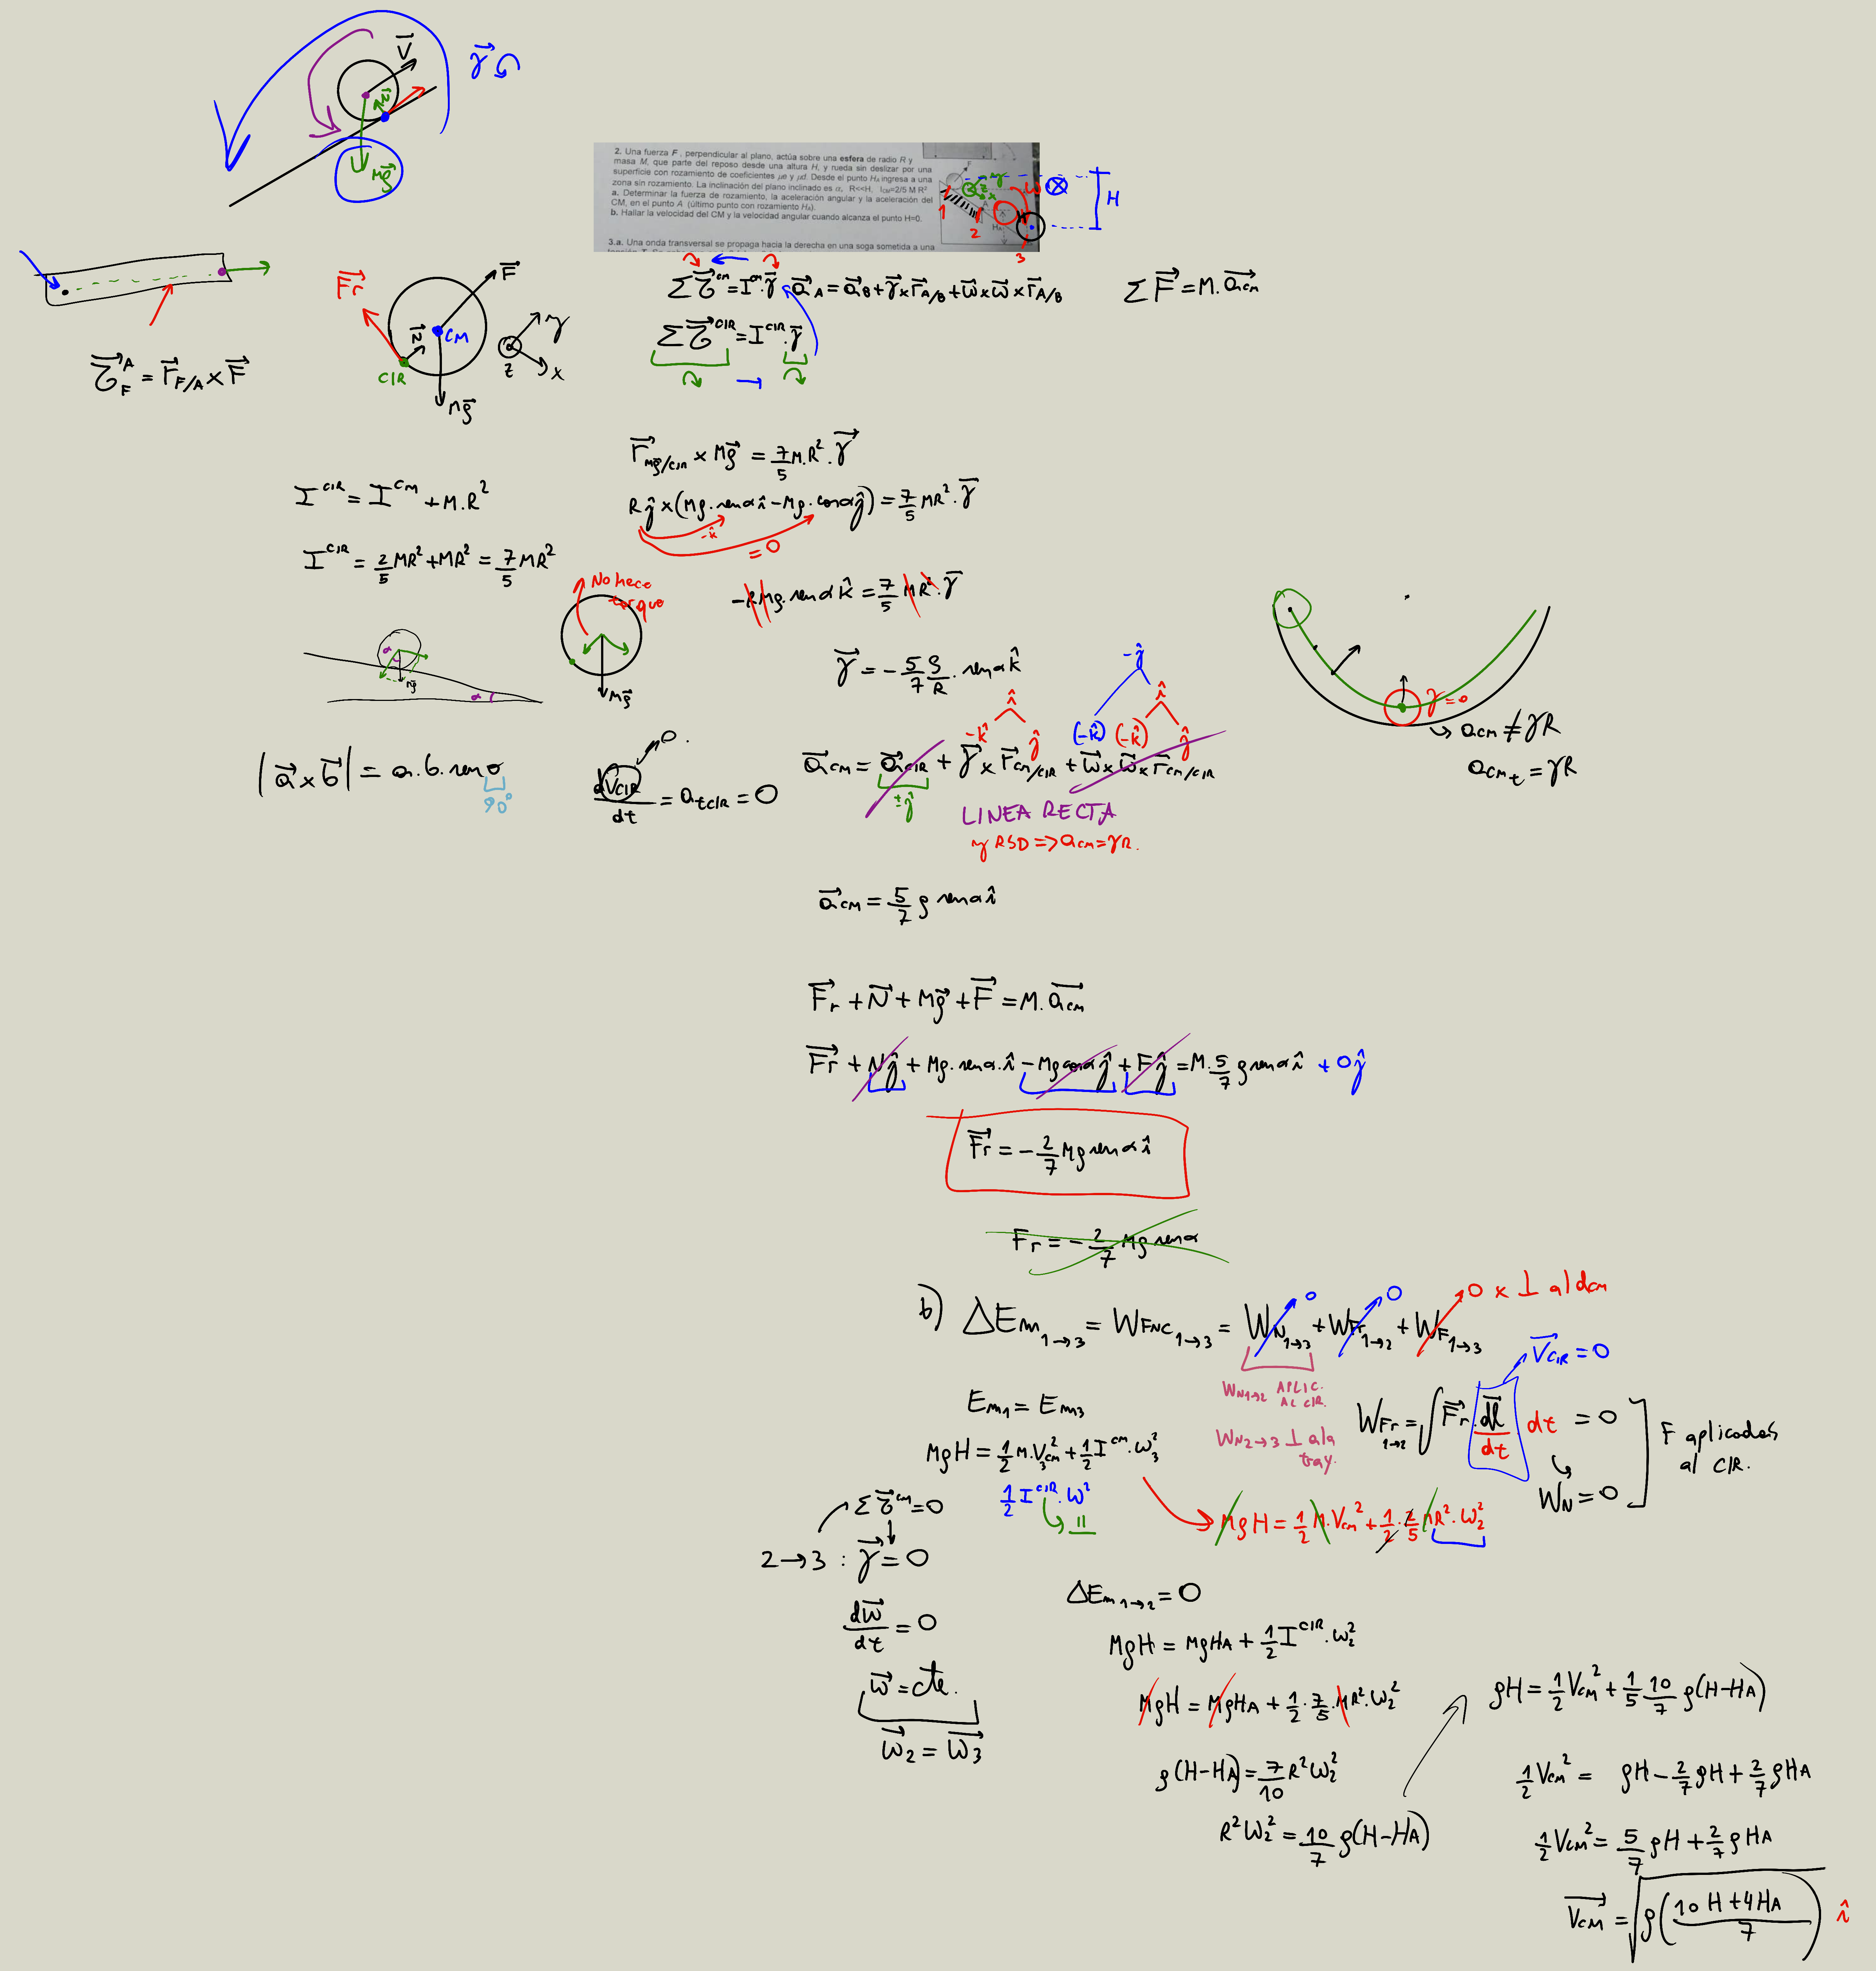 V⃗
γ⃗
N⃗
Mg⃗
2. Una fuerza F , perpendicular al plano, actúa sobre una esfera de radio R y
masa M, que parte del reposo desde una altura H, y rueda sin deslizar por una
superficie con rozamiento de coeficientes μe y μd. Desde el punto HA ingresa a una
zona sin rozamiento. La inclinación del plano inclinado es α, R<<H, ICM=2/5 M R²
a. Determinar la fuerza de rozamiento, la aceleración angular y la aceleración del
CM, en el punto A (último punto con rozamiento HA).
b. Hallar la velocidad del CM y la velocidad angular cuando alcanza el punto H=0.
3.a. Una onda transversal se propaga hacia la derecha en una soga sometida a una
F
y
z
x
1
A
2
HA
3
H
τ⃗_F^A = r⃗_F/A x F⃗
Fr⃗
F⃗
N⃗
CM
CIR
Mg⃗
y
z
x
Στ⃗^CM = I^CM.γ⃗
a⃗_A = a⃗_B + γ⃗ x r⃗_A/B + ω⃗ x ω⃗ x r⃗_A/B
ΣF⃗ = M.a⃗cm
Στ⃗^CIR = I^CIR.γ⃗
r⃗_Mg/CIR x Mg⃗ = 7/5 M.R².γ⃗
I^CIR = I^CM + M.R²
Rĵ x (Mg.senα î - Mg.cosα ĵ) = 7/5 MR².γ⃗
-k̂
=0
I^CIR = 2/5 MR² + MR² = 7/5 MR²
No hace
torque
Mg⃗
-RMg.senα k̂ = 7/5 MR².γ⃗
α
Mg⃗
α
γ⃗ = -5/7 g/R . senα k̂
î
-k̂ ĵ
-ĵ
(-k̂) î
(-k̂) ĵ
γ=0
acm ≠ γR
acm_t = γR
|a⃗ x b⃗| = a.b.senθ
90°
0
dV_CIR/dt = a_tCIR = 0
a⃗cm = a⃗_CIR + γ⃗ x r⃗_CM/CIR + ω⃗ x ω⃗ x r⃗_CM/CIR
±ĵ
LINEA RECTA
y RSD => acm=γR.
a⃗cm = 5/7 g senα î
F⃗r + N⃗ + Mg⃗ + F⃗ = M.a⃗cm
F⃗r + Nĵ + Mg.senα.î - Mgcosα ĵ + Fĵ = M.5/7 g senα î + 0ĵ
F⃗r = -2/7 Mg senα î
Fr = -2/7 Mg senα
b) ΔEm_1→3 = W_FNC_1→3 = W_N_1→3 + W_Fr_1→2 + W_F_1→3
0
0
0 x ⊥ al dcm
W_N1→2 APLIC.
AL CIR.
W_N2→3 ⊥ a la
tray.
V⃗_CIR = 0
W_Fr_1→2 = ∫F⃗r.dl⃗/dt dt = 0
W_N = 0
F aplicadas
al CIR.
Em1 = Em3
MgH = 1/2 M.V3cm² + 1/2 I^CM.ω3²
1/2 I^CIR.ω²
MgH = 1/2 M.Vcm² + 1/2.2/5 MR².ω2²
Στ⃗^CM = 0
2→3 : γ⃗ = 0
dω⃗/dt = 0
ω⃗ = cte.
ω⃗2 = ω⃗3
ΔEm_1→2 = 0
MgH = MgHA + 1/2 I^CIR.ω2²
MgH = MgHA + 1/2.7/5.MR².ω2²
g(H-HA) = 7/10 R²ω2²
R²ω2² = 10/7 g(H-HA)
gH = 1/2 Vcm² + 1/5 10/7 g(H-HA)
1/2 Vcm² = gH - 2/7 gH + 2/7 gHA
1/2 Vcm² = 5/7 gH + 2/7 gHA
V⃗cm = √(g(10H+4HA/7)) î